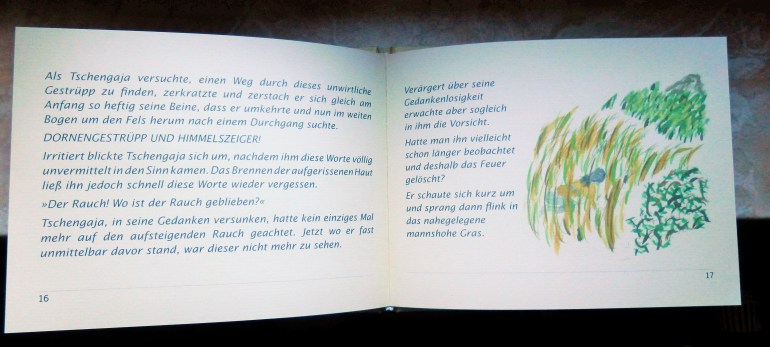 Als Tschengaja versuchte, einen Weg durch dieses unwirtliche
Gestrüpp zu finden, zerkratzte und zerstach er sich gleich am
Anfang so heftig seine Beine, dass er umkehrte und nun im weiten
Bogen um den Fels herum nach einem Durchgang suchte.
DORNENGESTRÜPP UND HIMMELSZEIGER!
Irritiert blickte Tschengaja sich um, nachdem ihm diese Worte völlig
unvermittelt in den Sinn kamen. Das Brennen der aufgerissenen Haut
ließ ihn jedoch schnell diese Worte wieder vergessen.
»Der Rauch! Wo ist der Rauch geblieben?«
Tschengaja, in seine Gedanken versunken, hatte kein einziges Mal
mehr auf den aufsteigenden Rauch geachtet. Jetzt wo er fast
unmittelbar davor stand, war dieser nicht mehr zu sehen.
16
Verärgert über seine
Gedankenlosigkeit
erwachte aber sogleich
in ihm die Vorsicht.
Hatte man ihn vielleicht
schon länger beobachtet
und deshalb das Feuer
gelöscht?
Er schaute sich kurz um
und sprang dann flink in
das nahegelegene
mannshohe Gras.
17